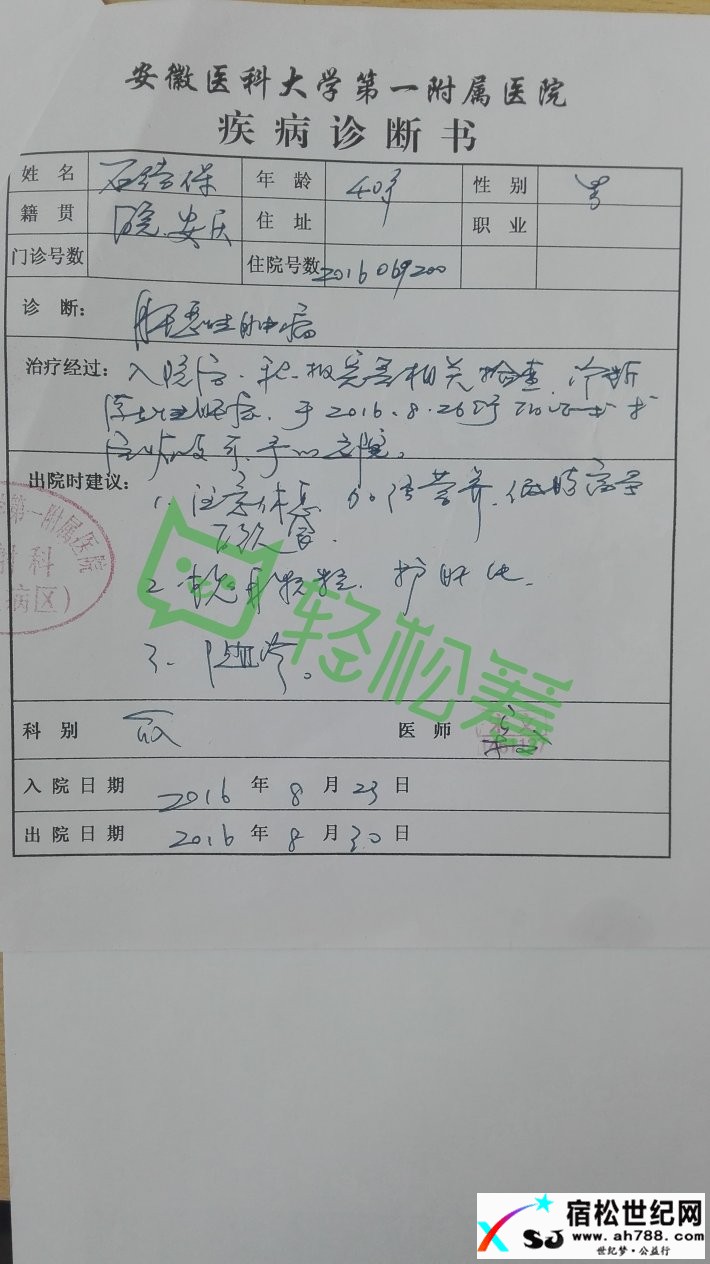 安徽医科大学第一附属医院
疾病诊断书
姓名 石结保 年龄 40岁 性别 男
籍贯 皖.安庆 住址 职业
门诊号数 住院号数 2016069200
诊断: 肝恶性肿瘤
治疗经过: 入院后.积极完善相关检查.诊断
于2016.8.26行
予以出院。
出院时建议: 1. 注意休息 加强营养.低脂高蛋
白饮食.
2 护肝
3. 随诊。
第一附属医院
射科
病区)
轻松筹
科别 医师
入院日期 2016年8月23日
出院日期 2016年8月30日
XSJ 宿松世纪网
www.ah788.com
世纪梦·公益行